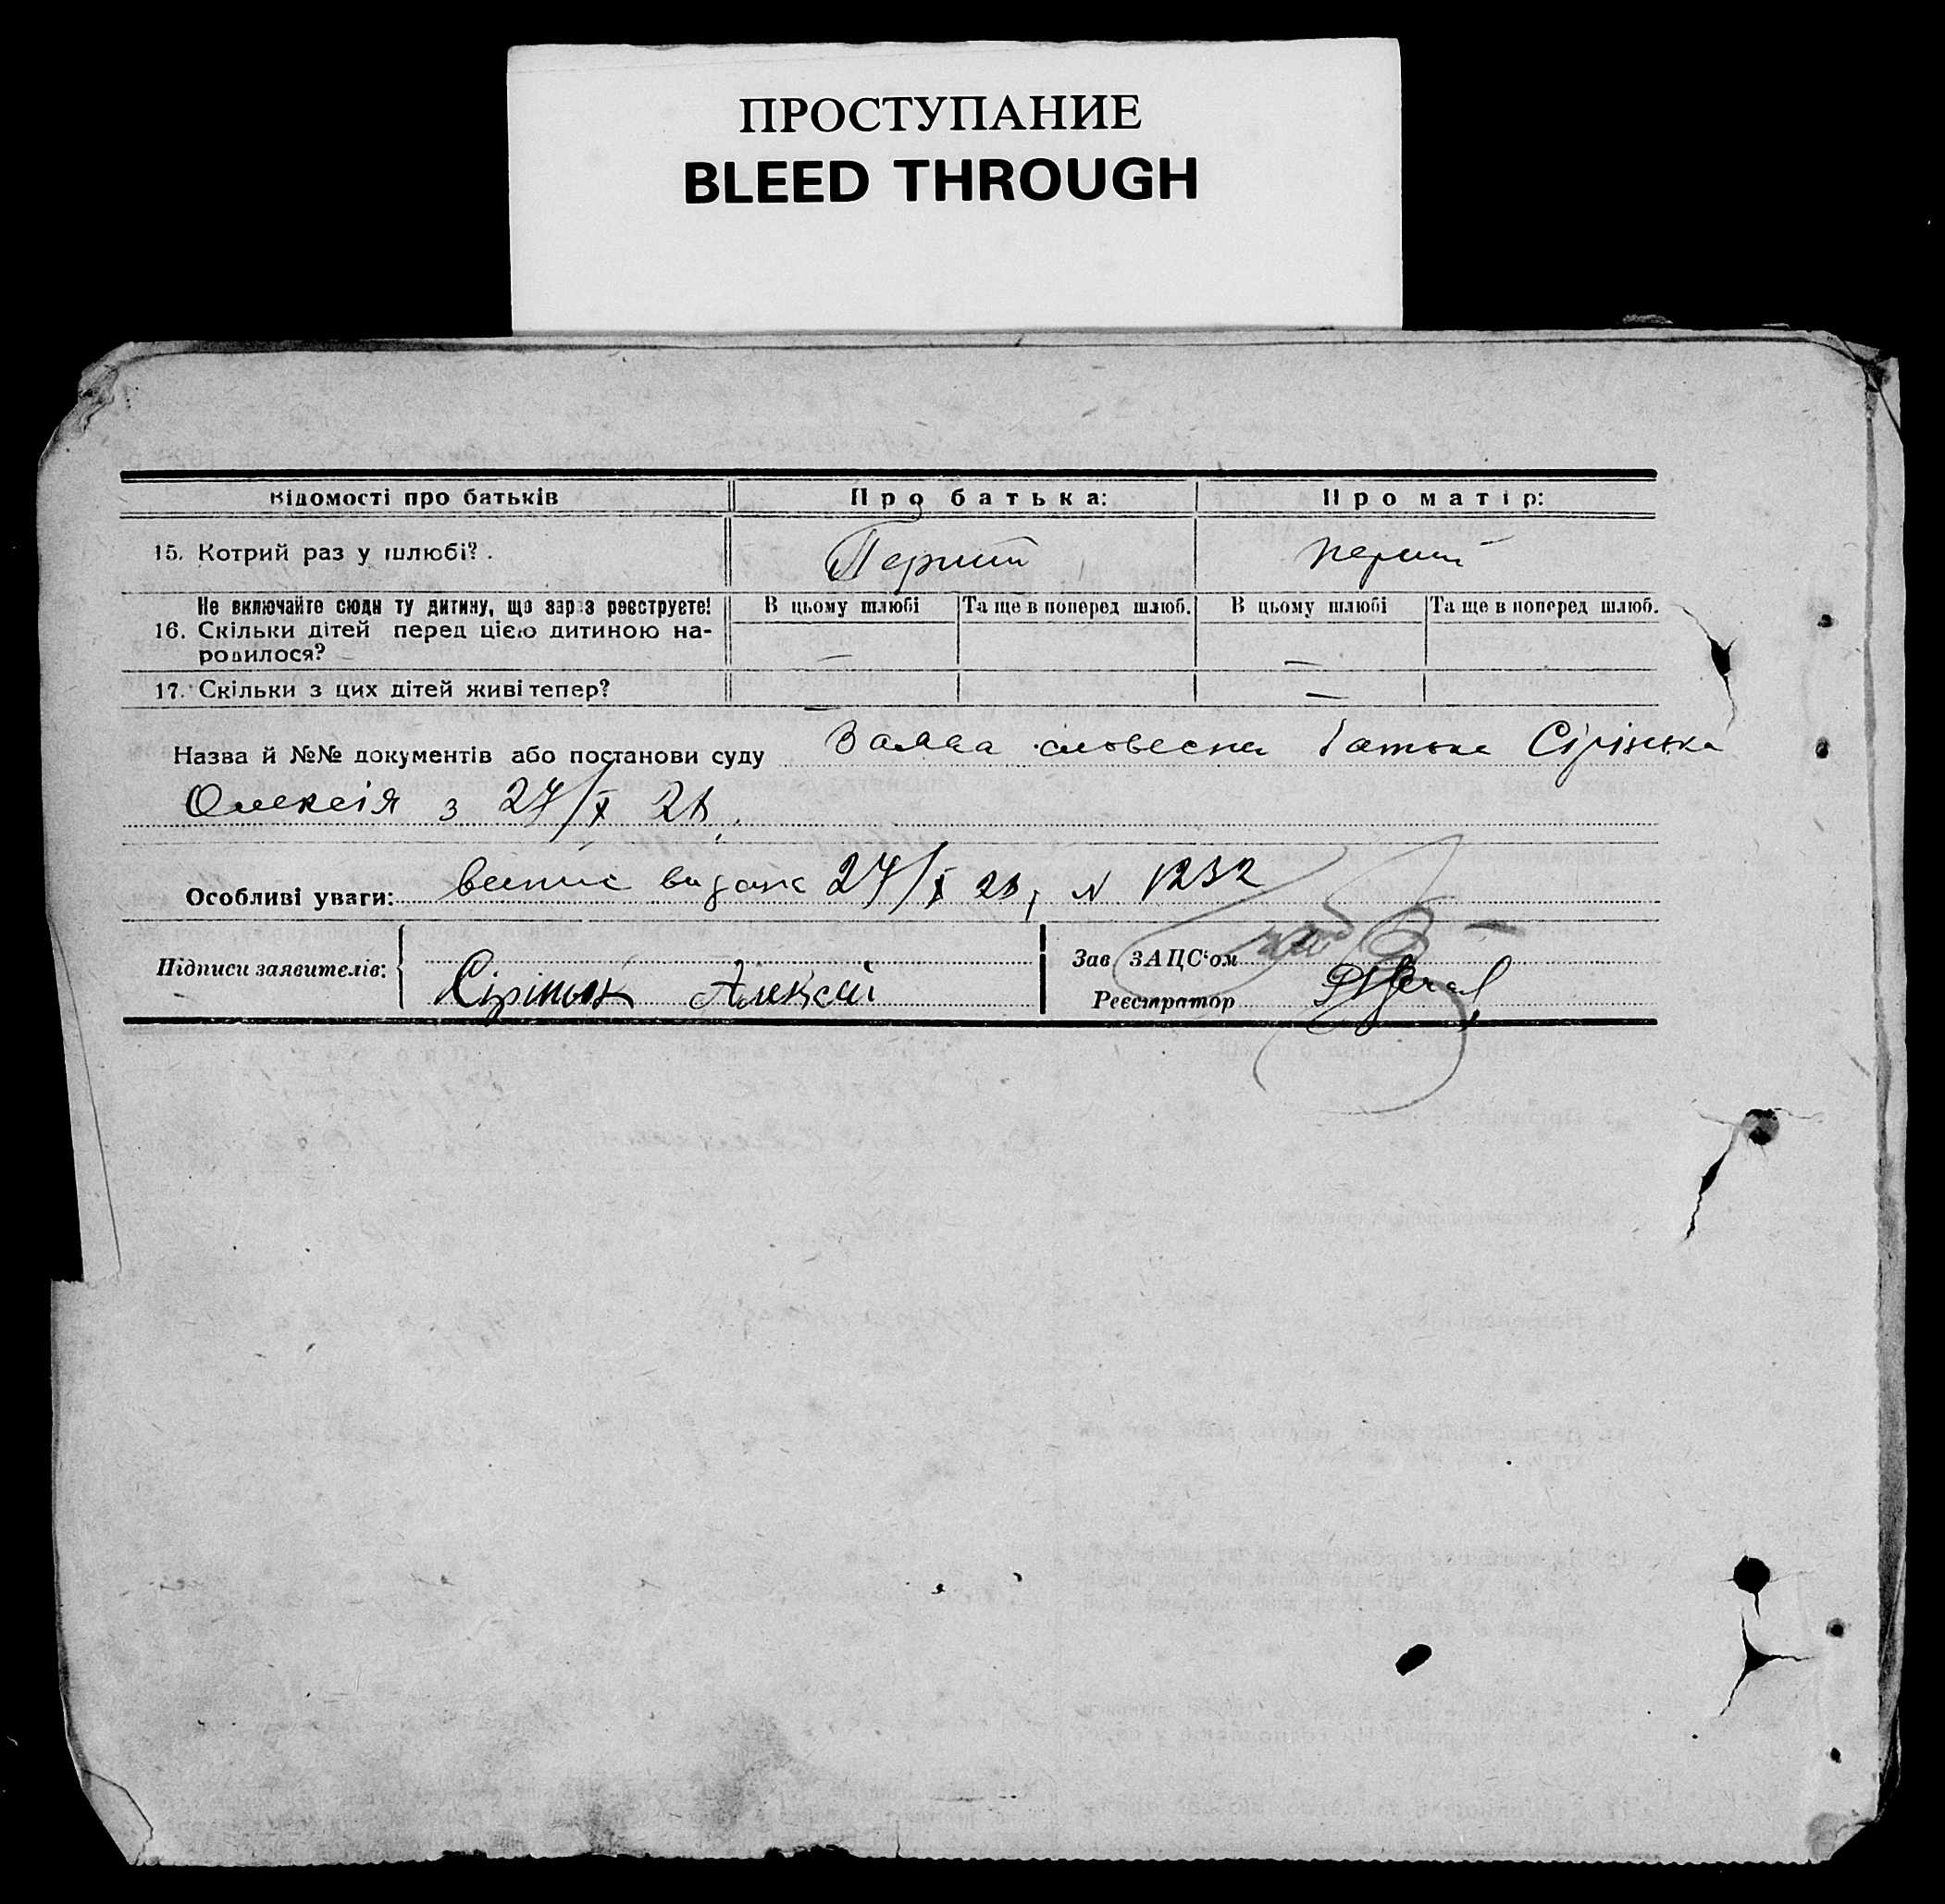 ПРОСТУПАНИЕ
BLEED THROUGH
Відомості про батьків Про батька: Про матір:
15. Котрий раз у шлюбі? Перший перший
Не включайте сюди ту дитину, що зараз реєструєте! В цьому шлюбі Та ще в поперед шлюб. В цьому шлюбі Та ще в поперед шлюб.
16. Скільки дітей перед цією дитиною на-
родилося? — —
17. Скільки з цих дітей живі тепер? — —
Назва й №№ документів або постанови суду Заява словесна батька Сірінька
Олексія з 27/X 28.
Особливі уваги: випис видано 27/X 28, N 1232
Підписи заявителів: Зав ЗАЦС‘ом
Сірінок Алексій Реєстратор